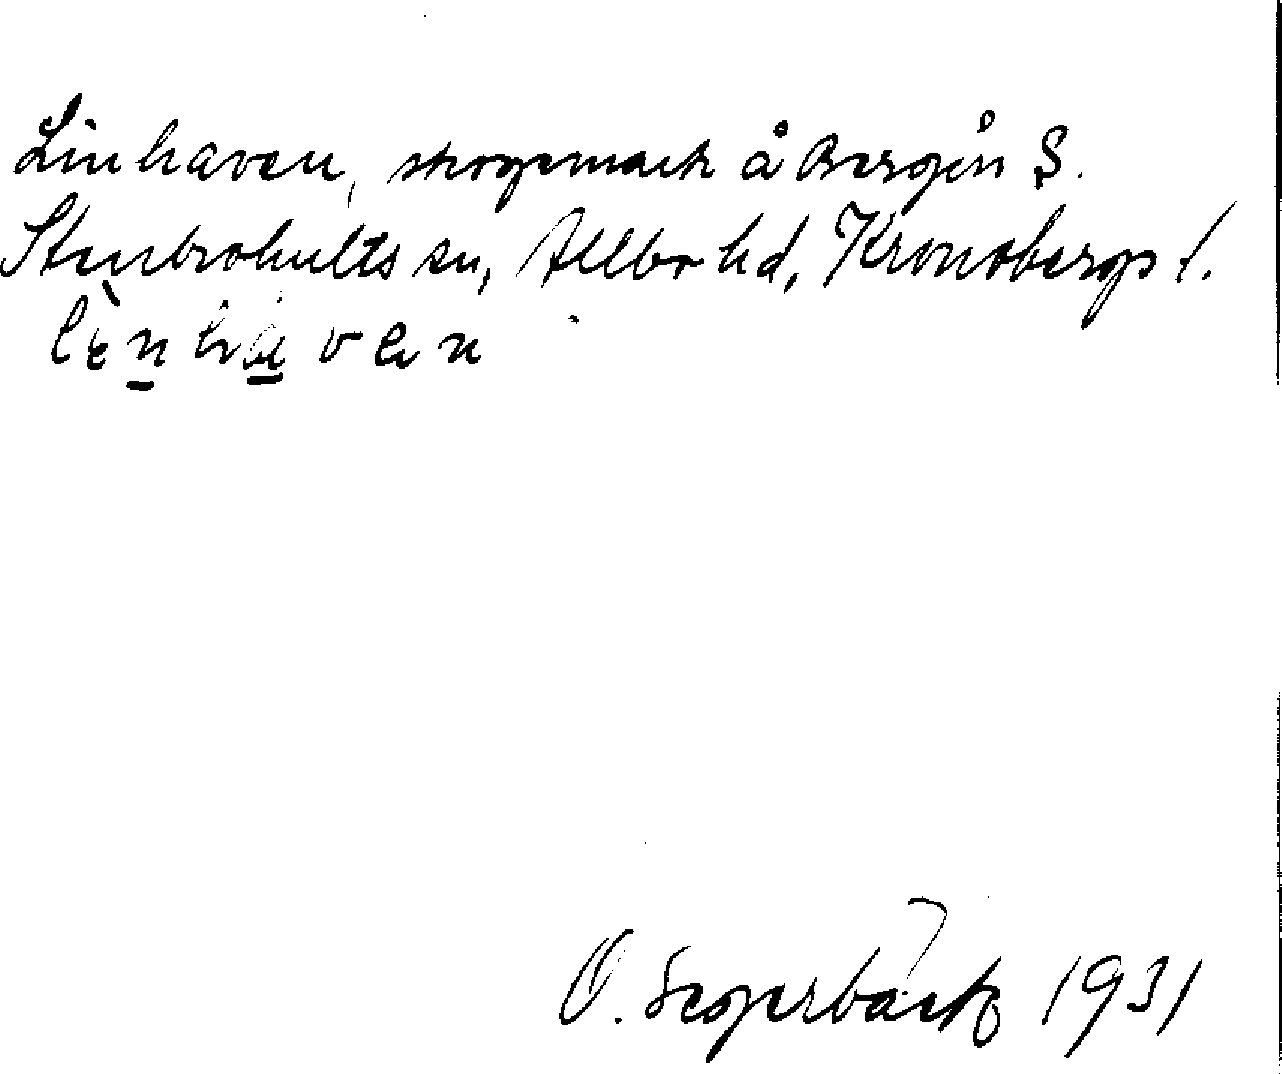 Linhaven, skogsmark å Bergön S.
Stenbrohults sn, Allbo hd, Kronobergs l.
lìnhaven
O. Segerbäck 1931